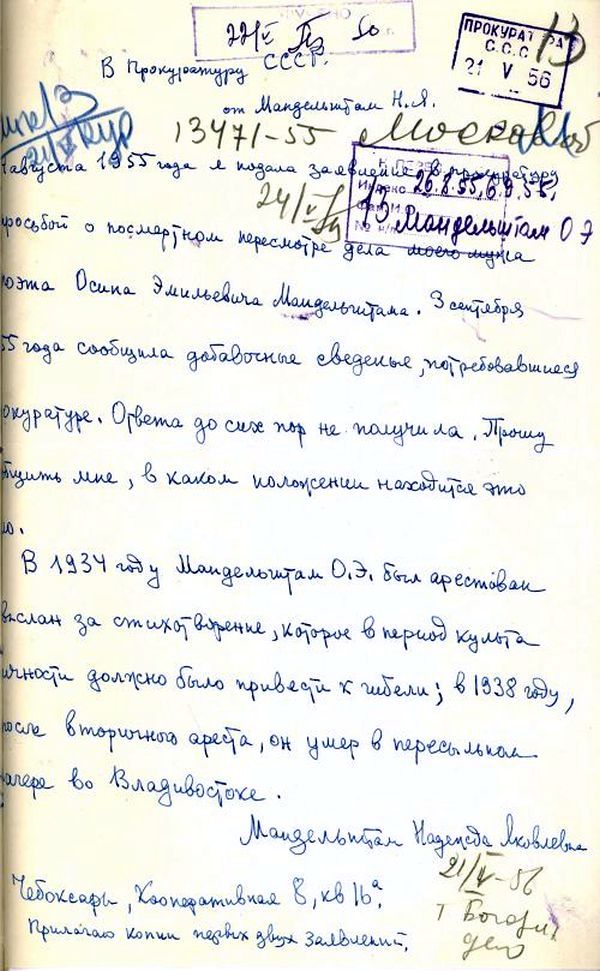 22/V
50.
В Прокуратуру СССР.
ПРОКУРАТУРА
С.С.С.Р
21 V 56
13
от Мандельштам Н.Я.
13471-55 Московской
августа 1955 года я подала заявление в прокуратуру
Индекс 26.8.55, 6.9.55,
24/V
13 Мандельштам О Э
просьбой о посмертном пересмотре дела моего мужа
поэта Осипа Эмильевича Мандельштама. 3 сентября
55 года сообщила добавочные сведенья, потребовавшиеся
окуратуре. Ответа до сих пор не получила. Прошу
бщить мне, в каком положении находится это
ло.
В 1934 году Мандельштам О.Э. был арестован
выслан за стихотворение, которое в период культа
ичности должно было привести к гибели; в 1938 году,
после вторичного ареста, он умер в пересыльном
лагере во Владивостоке.
Мандельштам Надежда Яковлевна
21/V-56
Чебоксары, Кооперативная 8, кв 16а.
Прилагаю копии первых двух заявлений.
т
дело